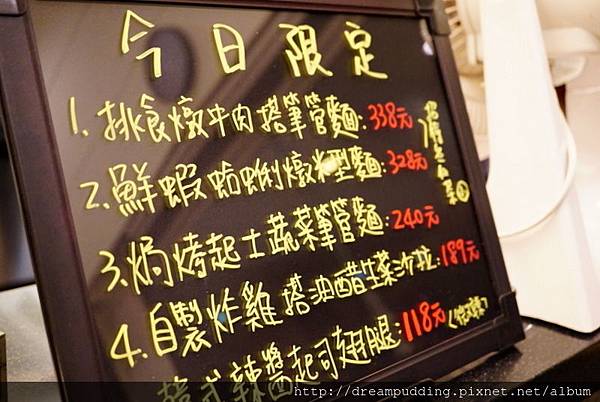 今日限定
1. 挑食燉牛肉搭筆管麵:338元
2. 鮮蝦蛤蜊燉米型麵:328元
3. 焗烤起士蔬菜筆管麵:240元
4. 自製炸雞搭油醋生菜沙拉:189元
韓式辣醬起司翅腿:118元
http://dreampudding.pixnet.net/album